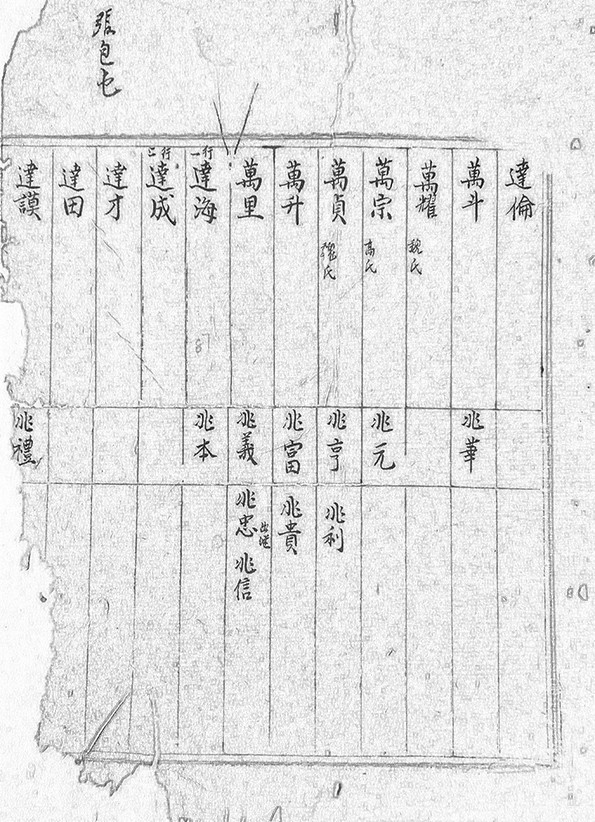 張包屯
達倫
萬斗 兆華
萬耀 魏氏
萬宗 高氏 兆元
萬貞 氏 兆亨 兆利
萬升 兆富 兆貴
萬里 兆義 兆忠 兆信
行一 達海 兆本
行 達成
達才
達田
達謨 兆禮